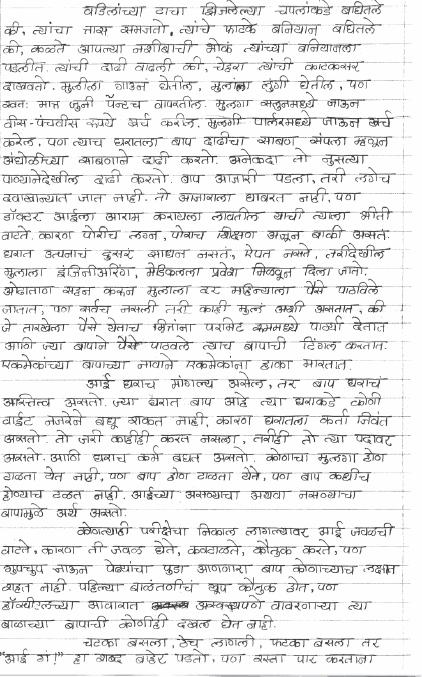 वडिलांच्या टाचा झिजलेल्या चपलांकडे बघितले
की, त्यांचा त्रास समजतो. त्यांचे फाटके बनियान बघितले
की, कळते आपल्या नशीबाची भोकं त्यांच्या बनियानला
पडलीत. त्यांची दाढी वाढली की, चेहरा त्यांची काटकसर
दाखवतो. मुलीला गाऊन घेतील, मुलांला लुंगी घेतील, पण
स्वत: मात्र जुनी पॅन्टच वापरतील. मुलगा सलूनमध्ये जाऊन
वीस-पंचवीस रुपये खर्च करील. मुलगी पार्लरमध्ये जाऊन खर्च
करेल, पण त्याच घरातला बाप दाढीचा साबण संपला म्हणून
अंघोळीच्या साबणाने दाढी करतो. अनेकदा तो नुसत्या
पाण्यानेदेखील दाढी करतो. बाप आजारी पडला, तरी लगेच
दवाखान्यात जात नाही. तो आजाराला घाबरत नाही, पण
डॉक्टर आईला आराम करायला लावतील याची त्याला भीती
वाटते. कारण पोरीचं लग्न, पोराचं शिक्षण अजून बाकी असतं.
घरात उत्पनाचं दुसरं साधन नसतं, ऐपत नसते, तरीदेखील
मुलाला इंजिनीअरिंग, मेडिकलला प्रवेश मिळवून दिला जातो.
ओढाताण सहन करून मुलाला दर महिन्याला पैसे पाठविले
जातात, पण सर्वच नसली तरी काही मुलं अशी असतात, की
जे तारखेला पैसे येताच मित्रांना परमिट रूममध्ये पार्ट्या देतात
आणि ज्या बापाने पैसे पाठवले त्याच बापाची टिंगल करतात.
एकमेकांच्या बापाच्या नावाने एकमेकांना हाका मारतात.
आई घराचं मांगल्य असेल, तर बाप घराचं
अस्तित्व असतो. ज्या घरात बाप आहे त्या घराकडे कोणी
वाईट नजरेने बघू शकत नाही, कारण घरातला कर्ता जिवंत
असतो. तो जरी काहीही करत नसला, तरीही तो त्या पदावर
असतो. आणि घराचं कर्म बघत असतो. कोणाचा मुलगा होणं
टाळता येत नाही, पण बाप होणं टाळता येते, पण बाप कधीच
होण्याचं टळत नाही. आईच्या असण्याचा अथवा नसण्याचा
बापामुळे अर्थ असतो.
कोणत्याही परीक्षेचा निकाल लागल्यावर आई जवळची
वाटते, कारण ती जवळ घेते, कवटाळते, कौतुक करते, पण
गुपचुप जाऊन पेढ्यांचा पुडा आणणारा बाप कोणाच्याच लक्षात
राहत नाही. पहिल्या बाळंतणीचं खूप कौतुक होतं, पण
हॉस्पीटलच्या आवारात अस्वस्थपणे वावरणाऱ्या त्या
बाळाच्या बापाची कोणीही दखल घेत नाही.
चटका बसला, ठेच लागली, फटका बसला तर
"आई गं!" हा शब्द बाहेर पडतो, पण रस्ता पार करताना